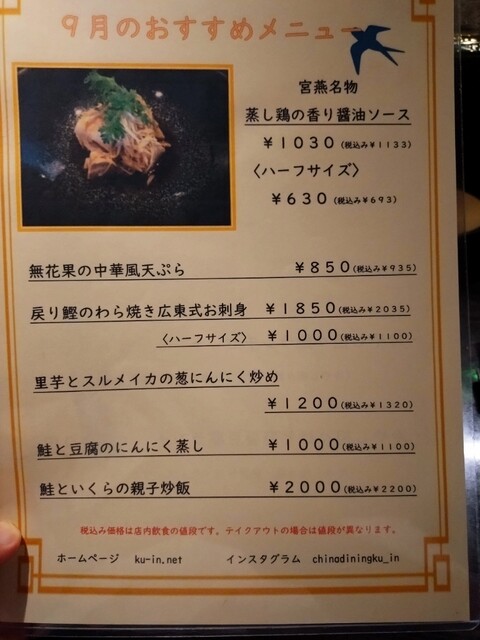 9月のおすすめメニュー
宮燕名物
蒸し鶏の香り醤油ソース
￥1030(税込み￥1133)
〈ハーフサイズ〉
￥630(税込み￥693)
無花果の中華風天ぷら ￥850(税込み￥935)
戻り鰹のわら焼き広東式お刺身 ￥1850(税込み￥2035)
〈ハーフサイズ〉 ￥1000(税込み￥1100)
里芋とスルメイカの葱にんにく炒め
￥1200(税込み￥1320)
鮭と豆腐のにんにく蒸し ￥1000(税込み￥1100)
鮭といくらの親子炒飯 ￥2000(税込み￥2200)
税込み価格は店内飲食の値段です。テイクアウトの場合は値段が異なります。
ホームページ ku-in.net インスタグラム chinadiningku_in